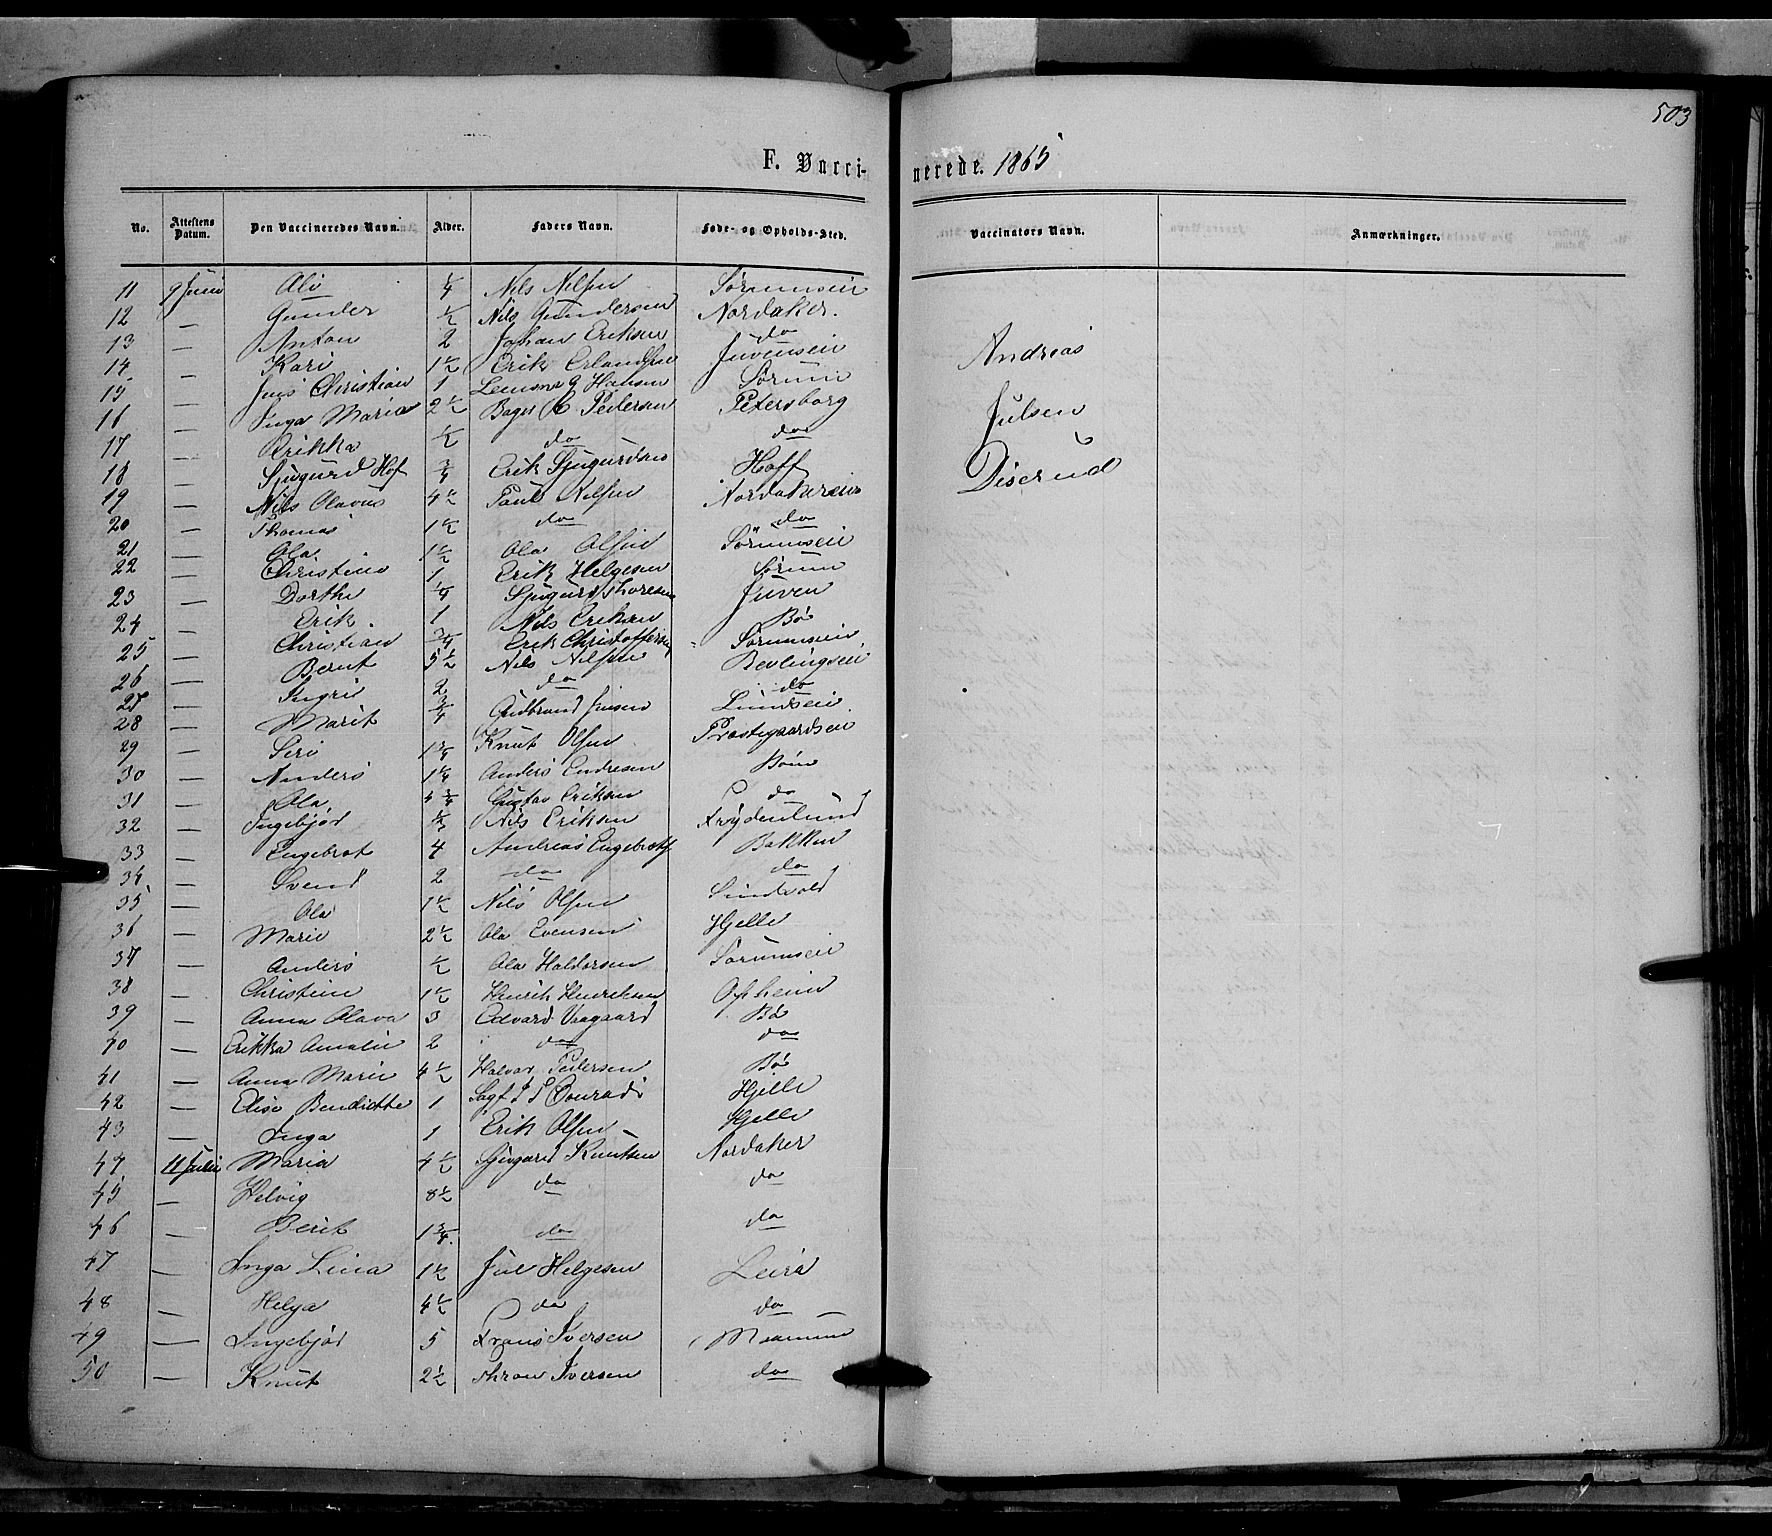 503
F. Vacci-nerede. 1865
No. Attestens Datum. Den Vaccineredes Navn. Alder. Faders Navn. Føde- og Opholds-Sted. Vaccinators Navn. Anmærkninger.
11 9 Juni Oli 1/4 Nils Nilsen Sørumseie
12 — Gunder 1/2 Nils Gundersen Nordaker.
13 — Anton 2 Johan Eriksen do
14 — Kari 1 1/2 Erik Erlandsen Juvenseie
15 — Jens Christian 1 Hansen Sørum
16 — Inga Maria 2 1/2 Pedersen Petersborg
17 — Erikka 1/2 do do
18 — Sjugurd Hof 3/4 Erik Sjugurdsen Hoff
19 — Nils Olavus 4 1/2 Paul Nilsen Nordakereie
20 — Thomas 1 1/2 do do
21 — Ola 1 1/2 Ola Olsen Sørumseie
22 — Christine 1 Erik Helgesen Sørum
23 — Dorthe 1/4 Sjugurd Thoresen Juven
24 — Erik. 1 Nils Eriksen Bø
25 — Christian 3/4 Erik Christoffersen Sørumseie
26 — Bernt 5 1/2 Nils Nilsen Revlingseie
27 — Ingri 2 do do
28 — Marit 3/4 Gudbrand Jensen Lundseie
29 — Siri 1 3/4 Knut Olsen Præstegaardseie
30 — Anders 1 1/4 Anders Endresen Bøen
31 — Ola 4 3/4 Gustav Eriksen do
32 — Ingebjør 1/2 Nils Eriksen Frydenlund
33 — Engebrot 4 Andreas Engebrots Bakken
34 — Svend 2 do do
35 — Ola 1 1/2 Nils Olsen Sundvold
36 — Marie 2 1/2 Ola Evensen Hjelle
37 — Anders 1/2 Ola Haldorsen Sørumseie
38 — Christine 1 1/2 Henrik Henriksen Opheim
39 — Anna Olava 3 Edvard Vaagaard Bø
40 — Erikka Amalie 2 do do
41 — Anna Marie 4 1/2 Halvor Pedersen Bø
42 — Elise Bendikte 1 Conradi Hjelle
43 — Inga 1 Erik Olsen Hjelle
44 11 Juli Maria 4 1/2 Sjugurd Knutsen Nordaker
45 — Helvig 8 1/2 do do
46 — Berit 1 3/4. do do
47 — Inga Lina 1 1/2 Jul Helgesen Leira
48 — Helga 4 1/2 do do
49 — Ingebjør 5 Frans Iversen
50 — Knut 2 1/2 Thron Iversen do
Andreas
Julsen
Diserud